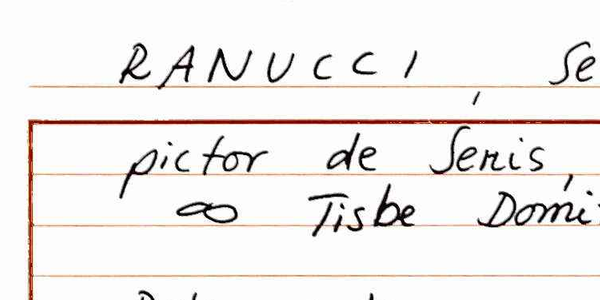 RANUCCI, Se
pictor de Senis,
∞ Tisbe Domi